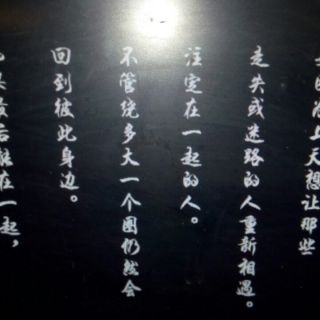 因为上天想让那些
走失或迷路的人重新相遇。
注定在一起的人。
不管绕多大一个圈仍然会
回到彼此身边。
果最后能在一起，